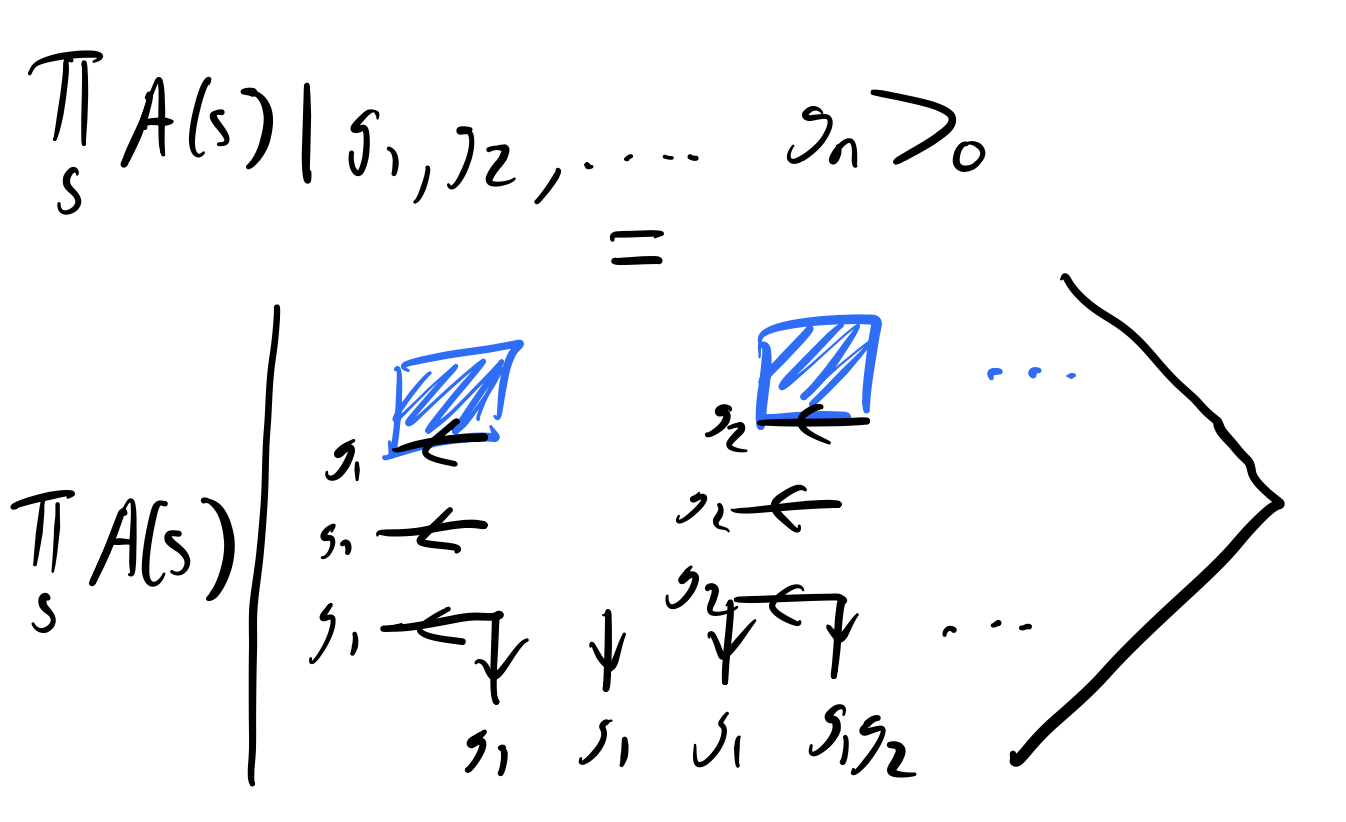 ∏ₛ A(s) | g₁, g₂, .... gₙ >₀
=
∏ₛ A(s) |
g₂ ...
g₁
g₁ g₂
g₁ g₂ ...
g₁ g₁ g₁ g₁g₂